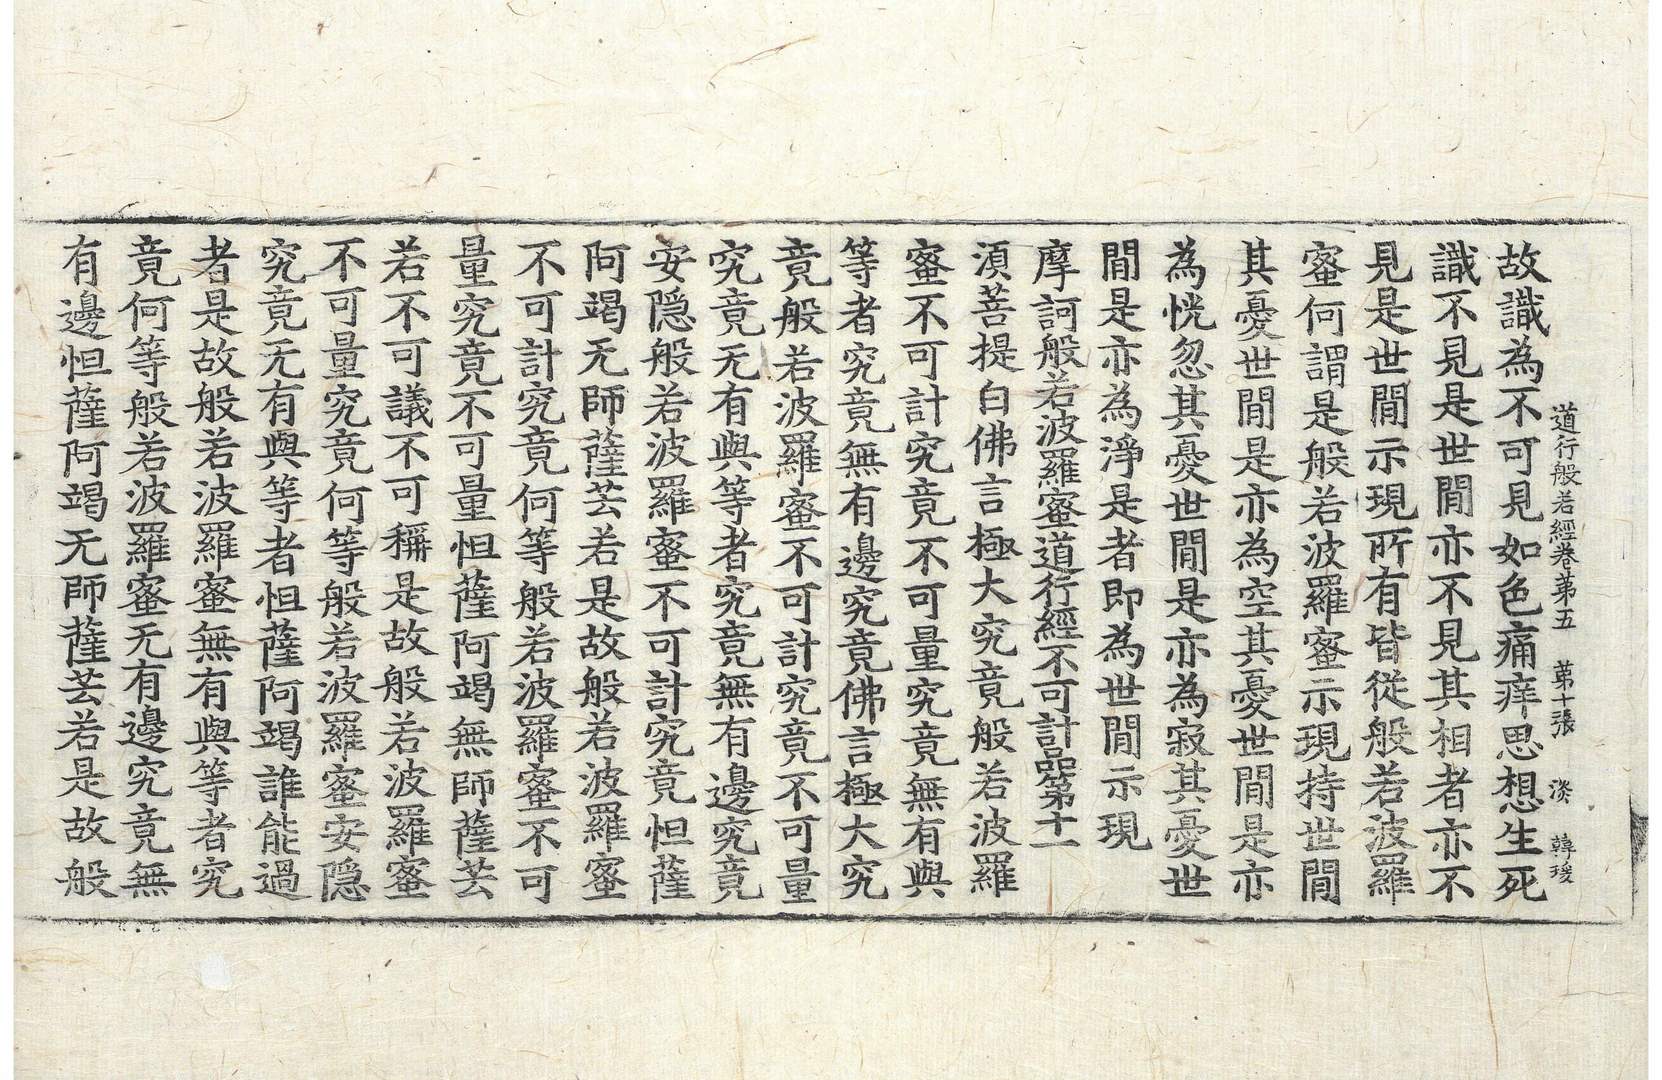 道行般若經卷苐五 苐十張 淡 韓
故識為不可見如色痛痒思想生死
識不見是世閒亦不見其相者亦不
見是世閒示現所有皆從般若波羅
蜜何謂是般若波羅蜜示現持世閒
其憂世閒是亦為空其憂世閒是亦
為恍忽其憂世閒是亦為寂其憂世
閒是亦為淨是者即為世閒示現
摩訶般若波羅蜜道行經不可計品第十一
湏菩提白佛言極大究竟般若波羅
蜜不可計究竟不可量究竟無有與
等者究竟無有邊究竟佛言極大究
竟般若波羅蜜不可計究竟不可量
究竟无有與等者究竟無有邊究竟
安隱般若波羅蜜不可計究竟怛薩
阿竭无師薩芸若是故般若波羅蜜
不可計究竟何等般若波羅蜜不可
量究竟不可量怛薩阿竭無師薩芸
若不可議不可稱是故般若波羅蜜
不可量究竟何等般若波羅蜜安隱
究竟无有與等者怛薩阿竭誰能過
者是故般若波羅蜜無有與等者究
竟何等般若波羅蜜无有邊究竟無
有邊怛薩阿竭无師薩芸若是故般